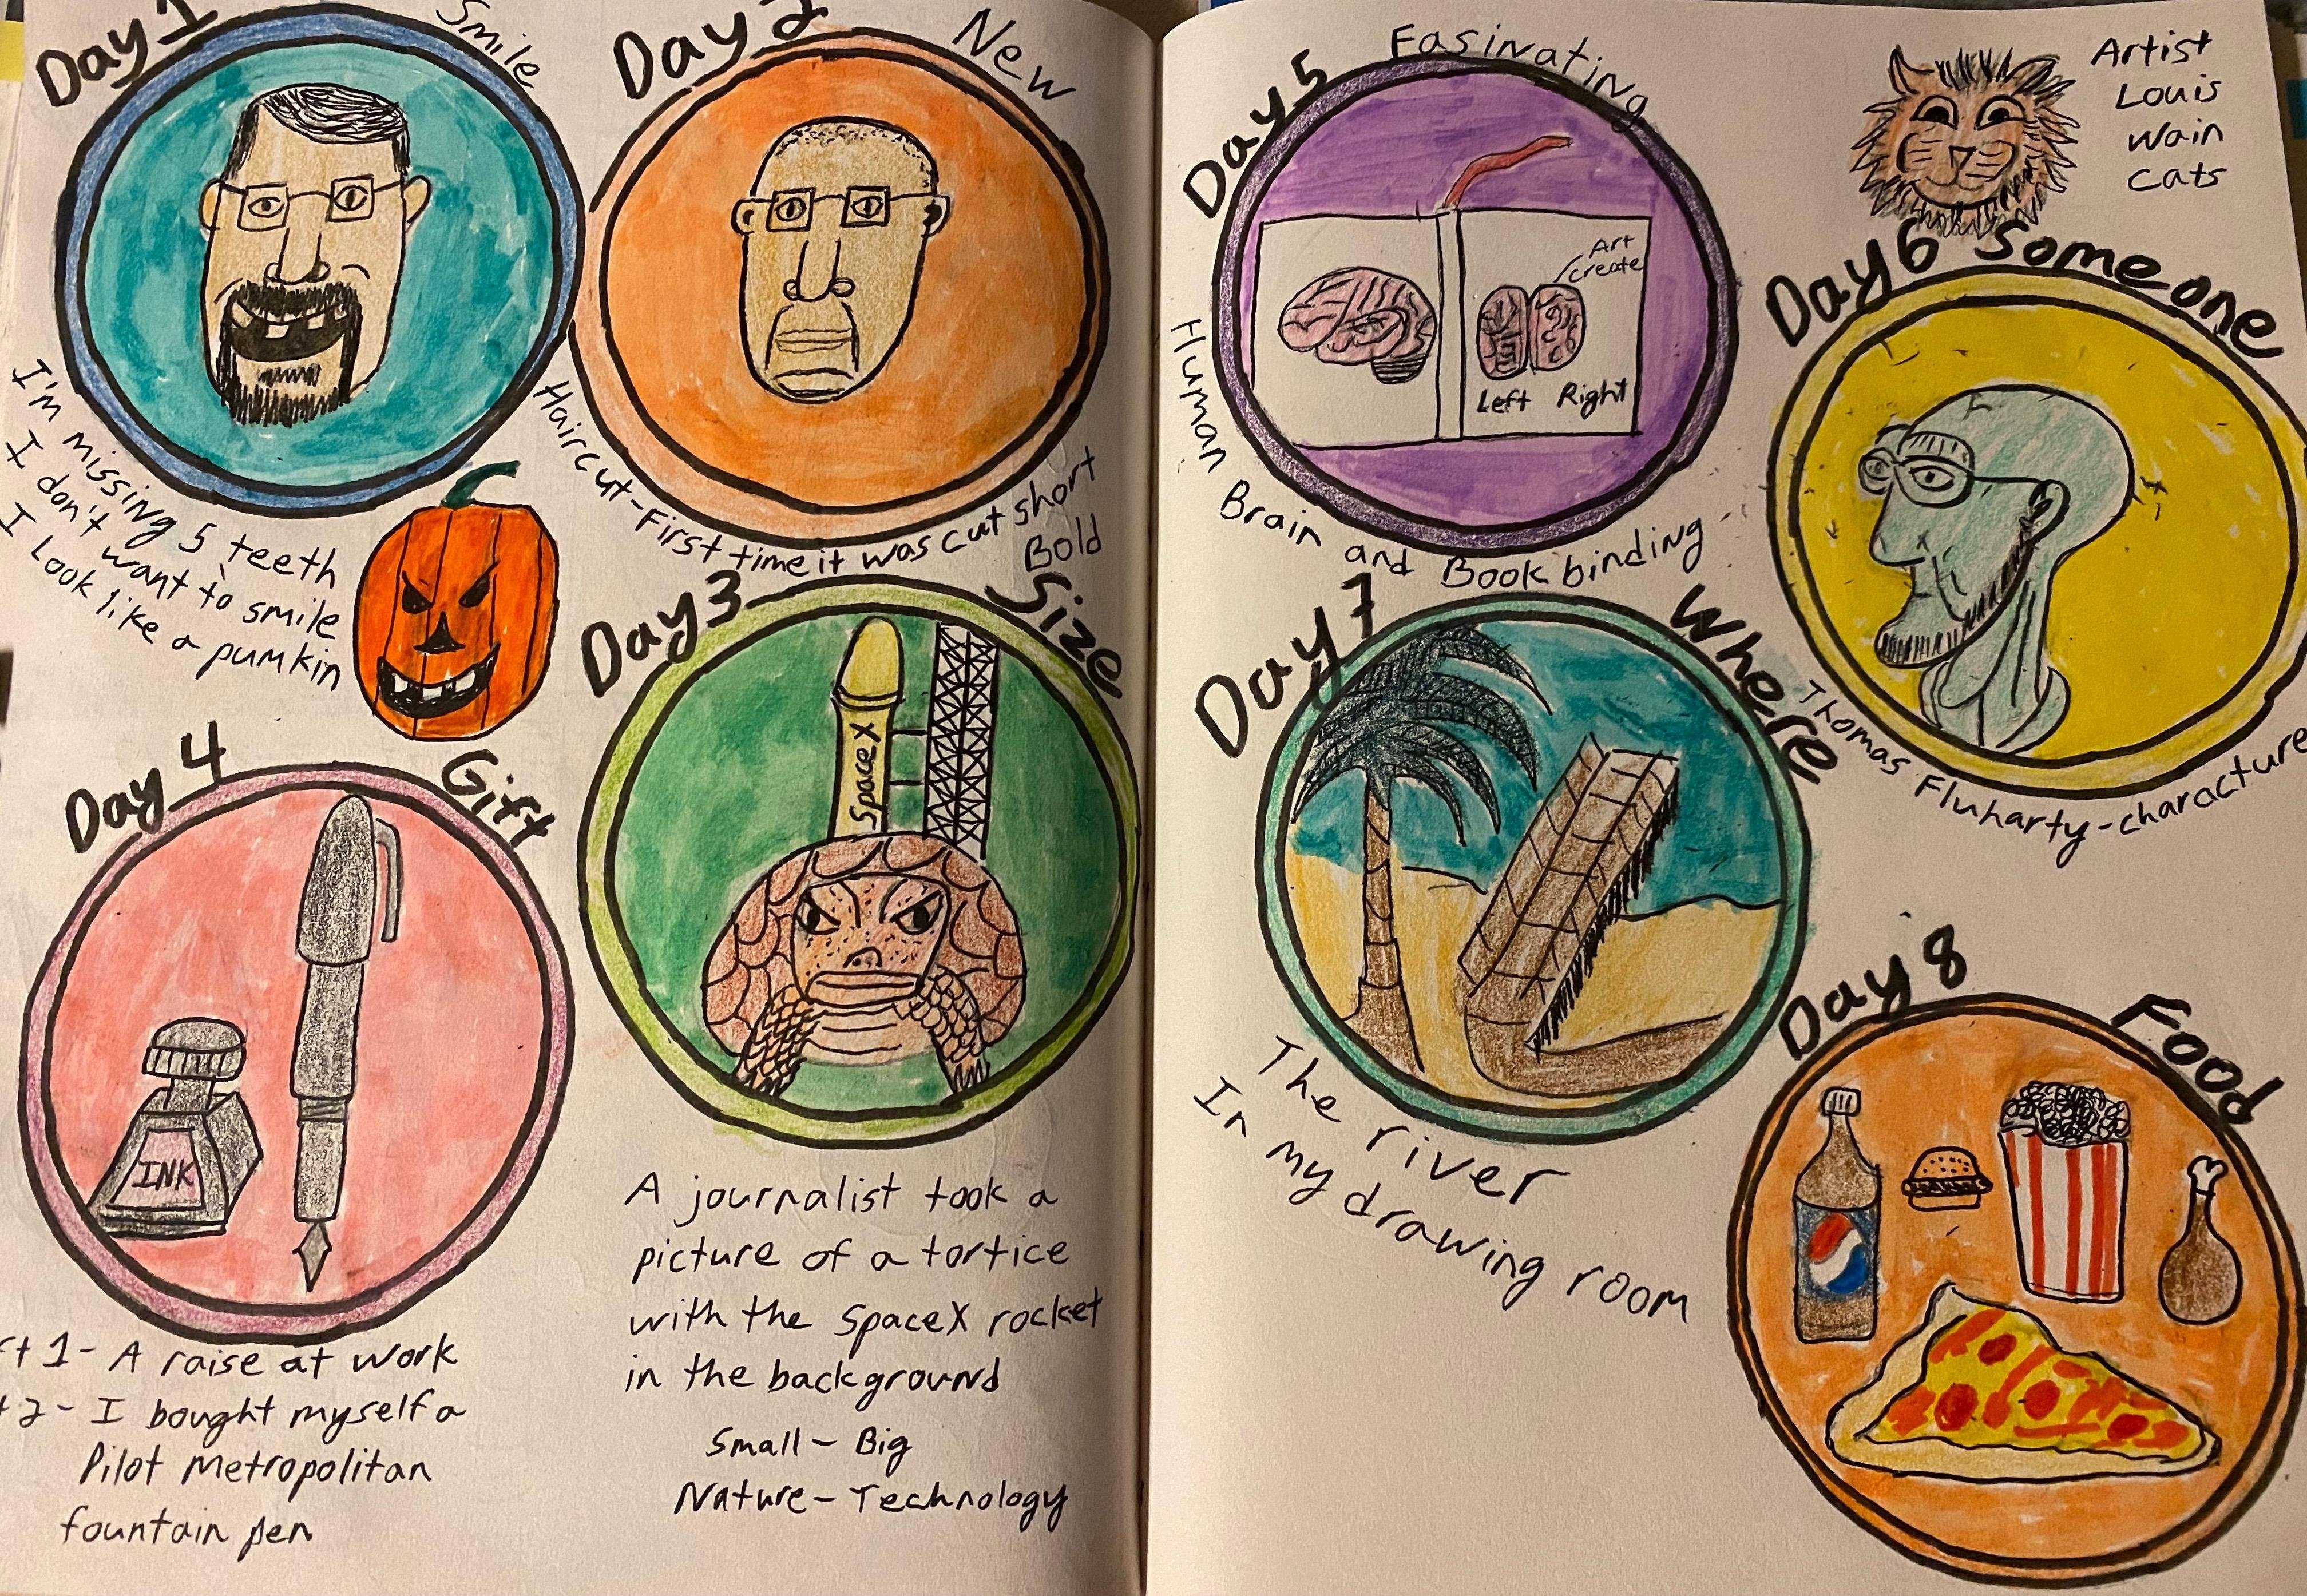 Day 1 Smile
I'm missing 5 teeth
I don't want to smile
I look like a pumkin
Day 2 New
Haircut-First time it was cut short
Bold
Day 3 Size
SpaceX
A journalist took a
picture of a tortice
with the SpaceX rocket
in the background
Small - Big
Nature - Technology
Day 4 Gift
INK
1- A raise at work
2- I bought myself a
Pilot Metropolitan
fountain pen
Day 5 Fasinating
Art
Create
Left Right
Human Brain and Book binding
Artist
Louis
Wain
Cats
Day 6 Someone
Thomas Fluharty-characture
Day 7 Where
The river
In my drawing room
Day 8 Food